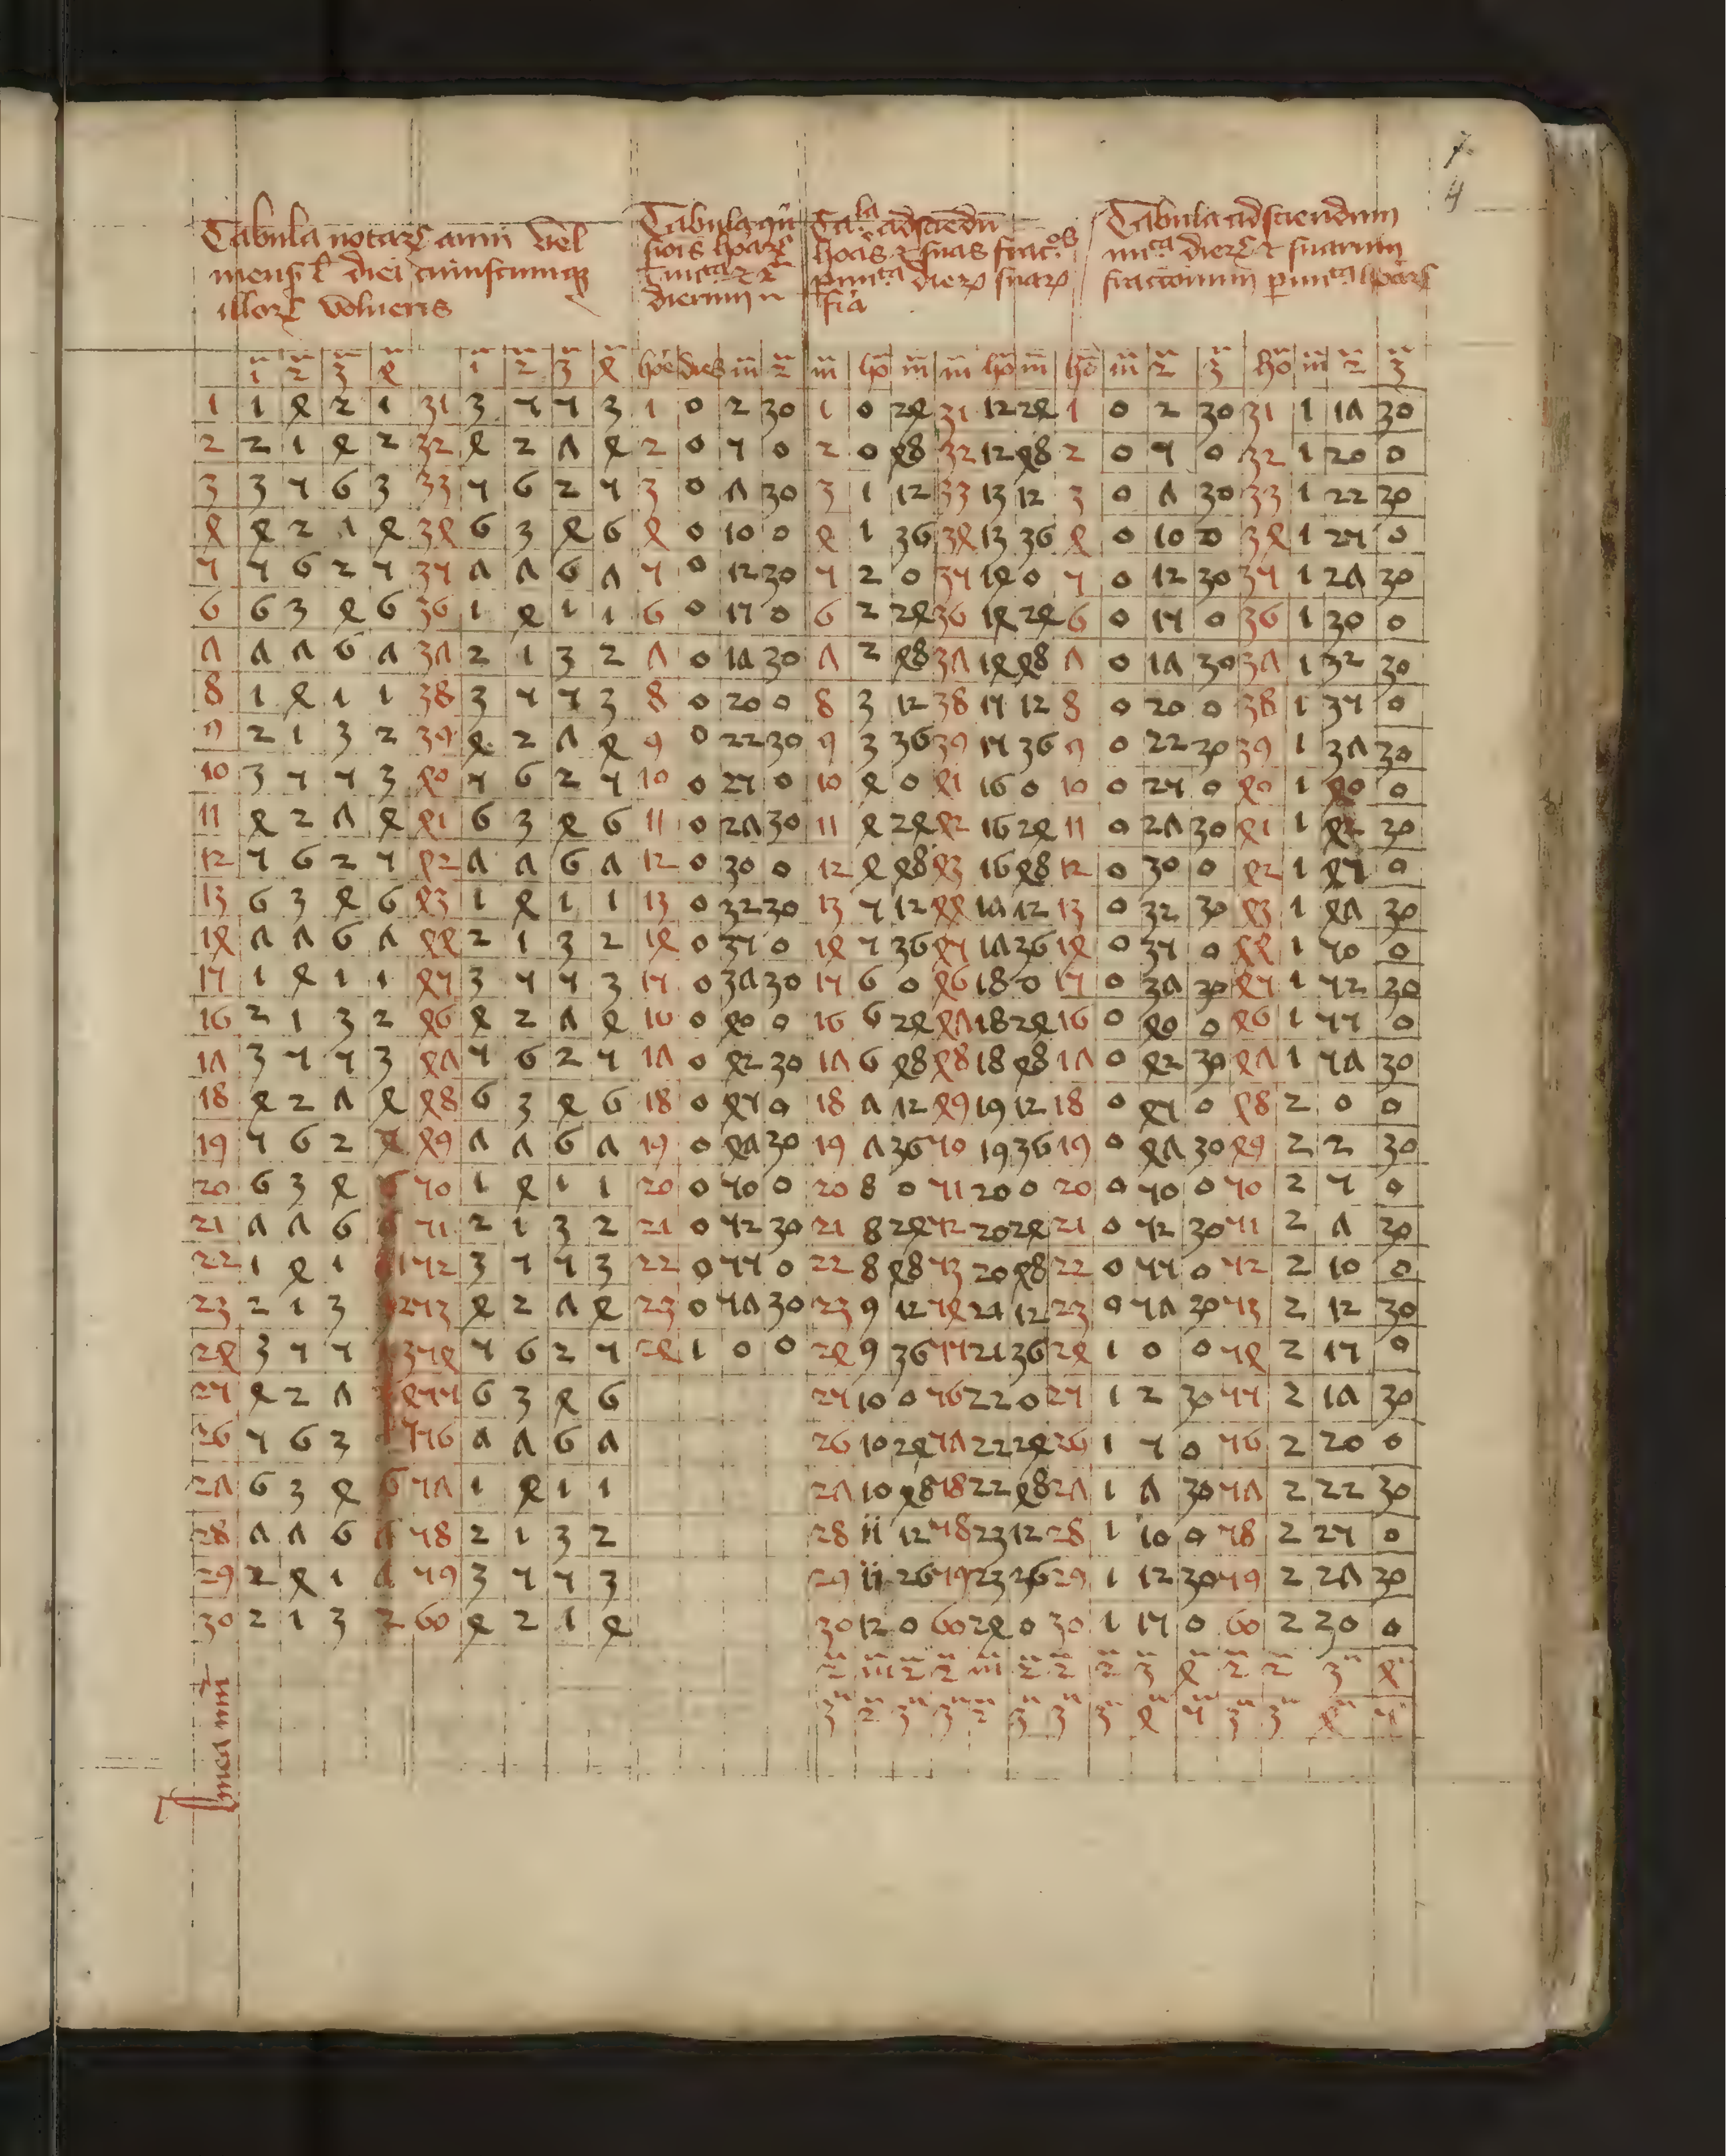 7
5
Tabula notarꝝ anni vel
mensꝭ l diei cuiuscumqꝫ
illorꝝ volueris
Tabula ꝯ̄v̄
sioīs horarꝝ
ī mi̅ᵗᵃ ⁊ 2ᵃ
dierum n
Taˡᵃ ad sciēdū
horas ⁊ suas fracᵒˢ
p miᵗᵃ dierꝝ suarꝝ
fr̄ia
Tabula ad sciendum
miᵗᵃ dierꝝ ⁊ suarum
fractionum p miᵗᵃ horarꝝ
1 2 3 4 1 2 3 4 hore dies m̄ 2 m̄ ho m̄ m̄ ho m̄ ho m̄ 2 3 ho m̄ 2 3
1 1 4 2 1 31 3 5 5 3 1 0 2 30 1 0 24 31 12 24 1 0 2 30 31 1 17 30
2 2 1 4 2 32 4 2 7 4 2 0 5 0 2 0 48 32 12 48 2 0 5 0 32 1 20 0
3 3 5 6 3 33 5 6 2 5 3 0 7 30 3 1 12 33 13 12 3 0 7 30 33 1 22 30
4 4 2 7 4 34 6 3 4 6 4 0 10 0 4 1 36 34 13 36 4 0 10 0 34 1 25 0
5 5 6 2 5 35 7 7 6 7 5 0 12 30 5 2 0 35 14 0 5 0 12 30 35 1 27 30
6 6 3 4 6 36 1 4 1 1 6 0 15 0 6 2 24 36 14 24 6 0 15 0 36 1 30 0
7 7 7 6 7 37 2 1 3 2 7 0 17 30 7 2 48 37 14 48 7 0 17 30 37 1 32 30
8 1 4 1 1 38 3 5 5 3 8 0 20 0 8 3 12 38 15 12 8 0 20 0 38 1 35 0
9 2 1 3 2 39 4 2 7 4 9 0 22 30 9 3 36 39 15 36 9 0 22 30 39 1 37 30
10 3 5 5 3 40 5 6 2 5 10 0 25 0 10 4 0 41 16 0 10 0 25 0 40 1 40 0
11 4 2 7 4 41 6 3 4 6 11 0 27 30 11 4 24 42 16 24 11 0 27 30 41 1 42 30
12 5 6 2 5 42 7 7 6 7 12 0 30 0 12 4 48 43 16 48 12 0 30 0 42 1 45 0
13 6 3 4 6 43 1 4 1 1 13 0 32 30 13 5 12 44 17 12 13 0 32 30 43 1 47 30
14 7 7 6 7 44 2 1 3 2 14 0 35 0 14 5 36 45 17 36 14 0 35 0 44 1 50 0
15 1 4 1 1 45 3 5 5 3 15 0 37 30 15 6 0 46 18 0 15 0 37 30 45 1 52 30
16 2 1 3 2 46 4 2 7 4 16 0 40 0 16 6 24 47 18 24 16 0 40 0 46 1 55 0
17 3 5 5 3 47 5 6 2 5 17 0 42 30 17 6 48 48 18 48 17 0 42 30 47 1 57 30
18 4 2 7 4 48 6 3 4 6 18 0 45 0 18 7 12 49 19 12 18 0 45 0 48 2 0 0
19 5 6 2 5 49 7 7 6 7 19 0 47 30 19 7 36 50 19 36 19 0 47 30 49 2 2 30
20 6 3 4 6 50 1 4 1 1 20 0 50 0 20 8 0 51 20 0 20 0 50 0 50 2 5 0
21 7 7 6 51 2 1 3 2 21 0 52 30 21 8 24 52 20 24 21 0 52 30 51 2 7 30
22 1 4 1 1 52 3 5 5 3 22 0 55 0 22 8 48 53 20 48 22 0 55 0 52 2 10 0
23 2 1 3 2 53 4 2 7 4 23 0 57 30 23 9 12 54 21 12 23 0 57 30 53 2 12 30
24 3 5 5 3 54 5 6 2 5 24 1 0 0 24 9 36 55 21 36 24 1 0 0 54 2 15 0
25 4 2 7 4 55 6 3 4 6 25 10 0 56 22 0 25 1 2 30 55 2 17 30
26 5 6 2 5 56 7 7 6 7 26 10 24 57 22 24 26 1 5 0 56 2 20 0
27 6 3 4 6 57 1 4 1 1 27 10 48 58 22 48 27 1 7 30 57 2 22 30
28 7 7 6 7 58 2 1 3 2 28 11 12 58 23 12 28 1 10 0 58 2 25 0
29 2 4 1 1 59 3 5 5 3 29 11 26 59 23 26 29 1 12 30 59 2 27 30
30 2 1 3 2 60 4 2 1 4 30 12 0 60 24 0 30 1 15 0 60 2 30 0
2 m̄ 2 2 m̄ 2 2 2 3 4 2 2 3 4
3 2 3 3 2 3 3 3 4 5 3 3 4 5
linea